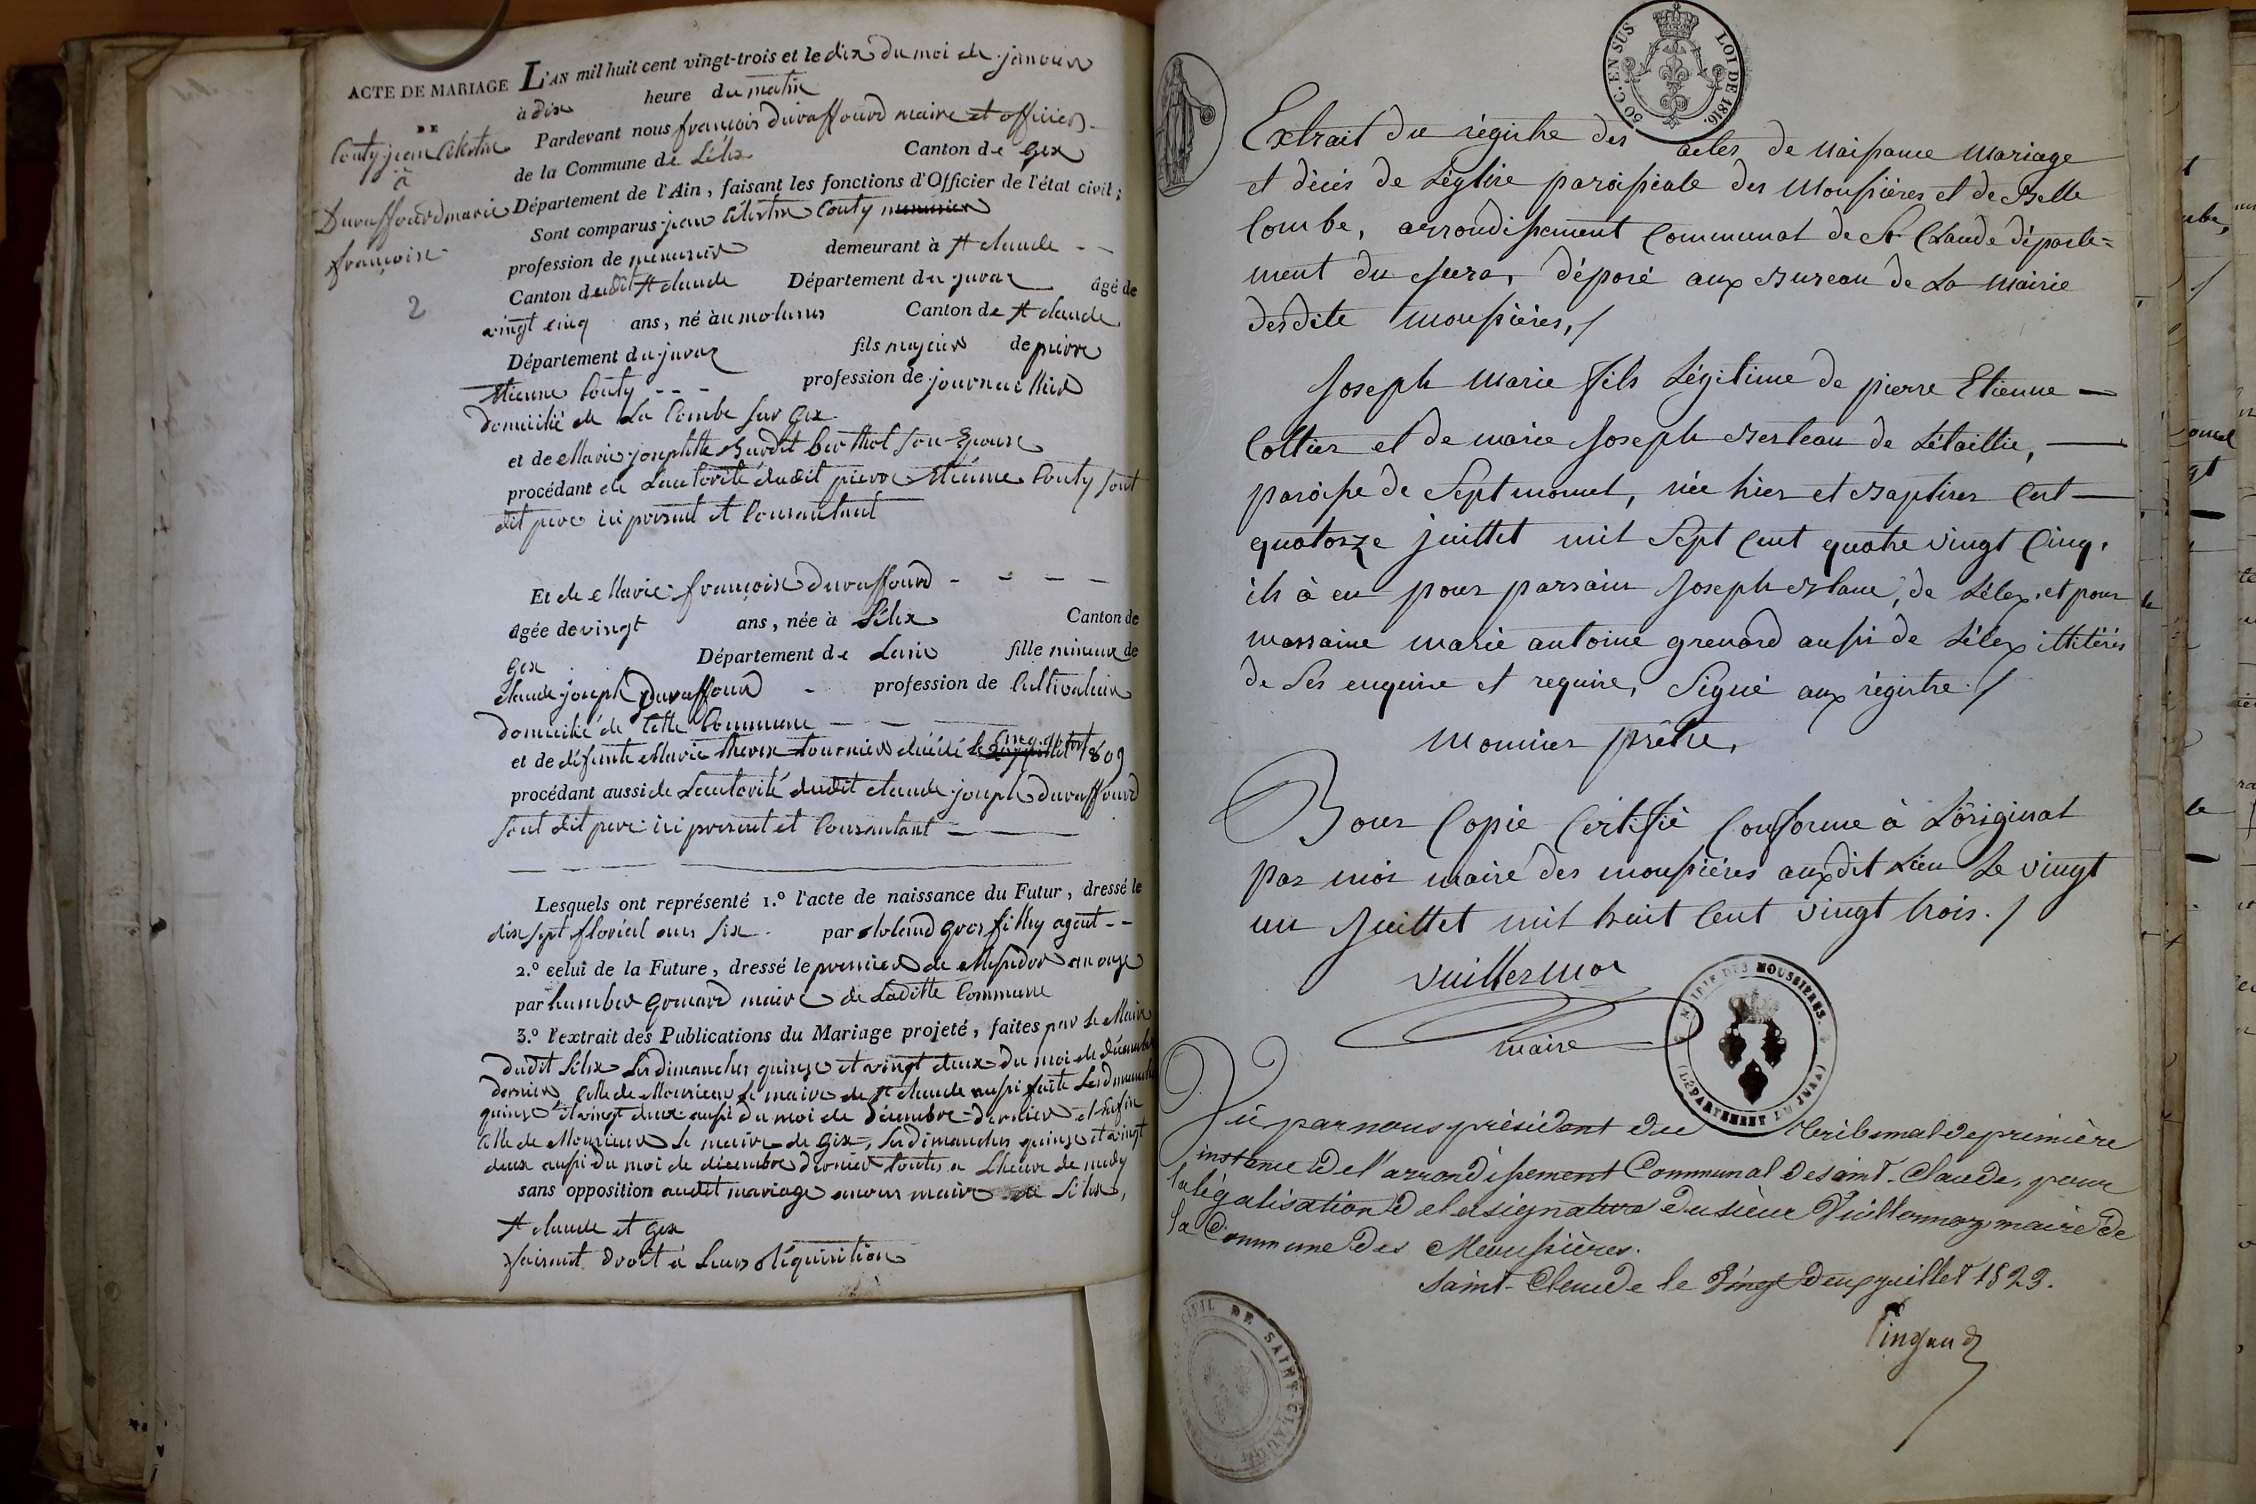 ACTE DE MARIAGE
DE
Couty jean Célestin
à
Duraffourd marie
françoise
2
L'AN mil huit cent vingt-trois et le dix du moi de janvier
à dix heure du matin
Pardevant nous françois duraffourd maire et officier
de la Commune de Lélex Canton de Gex
Département de l'Ain, faisant les fonctions d'Officier de l'état civil;
Sont comparus jean Célestin Couty menusier
profession de menusier demeurant à St claude - -
Canton dudit St claude Département du juraz âgé de
vingt cinq ans, né àu molunes Canton de St claude
Département du juraz fils majeur de pierre
Etienne Couty - - - profession de journaillier
domicilié de La Combe sur Gex
et de Marie josephtte Burdet berthot son Epouse
procédant de Lautorité dudit pierre Etienne Couty sont
dit pere ici present et Consantant
Et de Marie françoise duraffourd - - - -
âgée de vingt ans, née à Lélex Canton de
Gex Département de Lain fille mineure de
claude joseph Duraffourd - profession de Cultivateur
domicilié de Cette Commune - - -
et de défunte Marie therese tournier décédé le 1809
procédant aussi de Lautorité dudit claude joseph duraffourd
sont dit pere ici present et Consantant
Lesquels ont représenté 1.º l'acte de naissance du Futur, dressé le
dix sept floréal ans six par agent - -
2.º celui de la Future, dressé le premier de Messidor an onze
par humber Grenard maire de Laditte Commune
3.º l'extrait des Publications du Mariage projeté, faites par le Maire
dudit Lélex Les dimanches quinze et vingt deux du moi de décembre
dernier, Celle de Monsieur le maire de St claude aussi faite Les dimanche
quinze et vingt deux aussi du moi de décembre dernier et Enfin
Celle de Monsieur le maire de Gex, les dimanches quinze et vingt
deux aussi du moi de décembre dernier toutes a Lheure de midy
sans opposition audit mariage aucuns maire de Lélex,
St claude et Gex
faisant droit a Leurs réquisition
50 C. EN SUS LOI DE 1816.
Extrait du régistre des actes de Naissance Mariage
et décés de Léglise paroissicale des Moussières et de Belle
Combe, arrondissement Communal de St Claude départe=
ment du Jura, déposé aux Bureau de La Mairie
desdite Moussières, /
Joseph Marie fils Légitime de pierre Etienne —
Cottier et de marie Joseph Berteau de Létaillie, —
paroisse de Septmoncel, née hier et Baptiser Cert —
quatorze juillet mil Sept Cent quatre vingt Cinq,
ils à eu pour parrain Joseph Blanc, de Lélex, et pour
marraine marie antoine grenard aussi de Lélex illitérés
de Ses enquire et require, Signé aux régistre. /
Monnier prêtre.
Pour Copie Certifié Conforme à Lóriginal
par moi maire des moussières auxdit Lieu Le vingt
un Juillet mil huit Cent vingt trois. /
Vuillermoz
maire
MAIRIE DES MOUSSIERES. (DÉPARTEMENT DU JURA)
Vû par nous président du tribunal de première
instance de l'arrondissement Communal de saint-Claude, pour
la légalisation de la signature du sieur Vuillermoz maire de
la Commune des Moussières.
Saint-Claude le vingt deux juillet 1823.
Pingaud
CIVIL DE SAINT-CLAUDE